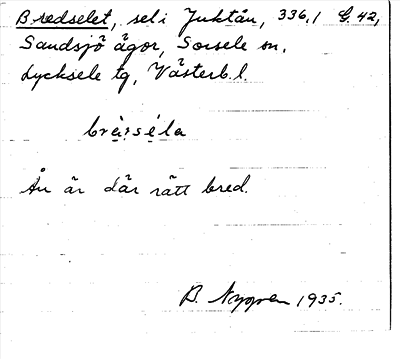 Bredselet, sel i Juktån, 336,1 G. 42,
Sandsjö ägor, Sorsele sn,
Lycksele tg, Västerb. l.
Ån är där rätt bred.
B. Nygren 1935.